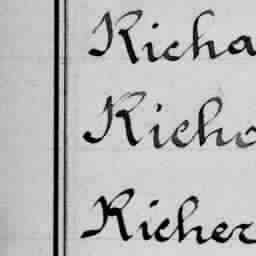 Richa
Richo
Richer